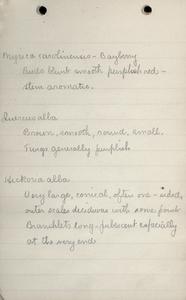 Myrica carolinensis - Bayberry
Buds blunt smooth purplish red -
stem aromatic.
Quercus alba
Brown, smooth, round, small.
Twigs generally purplish
Hickoria alba
Very large, conical, often one-sided,
outer scales deciduous with some points
Branchlets long-pubescent especially
at the very end